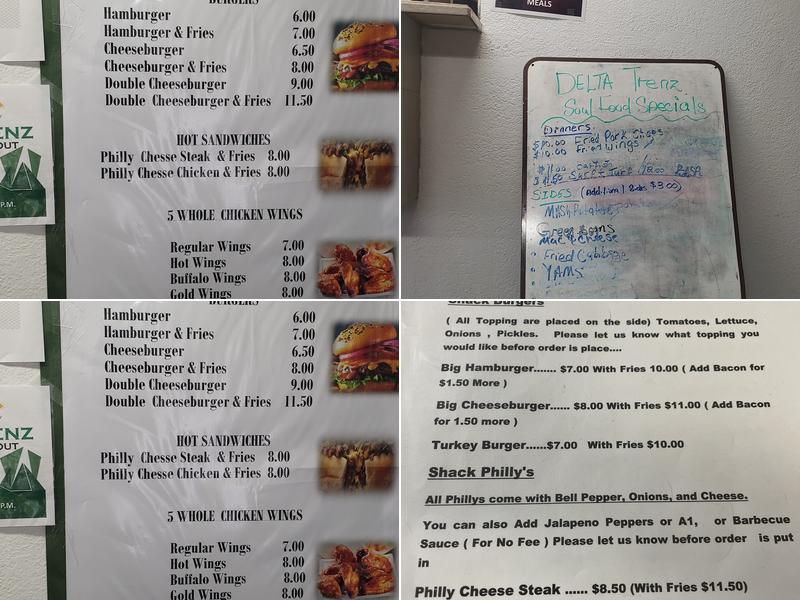 BURGERS
Hamburger 6.00
Hamburger & Fries 7.00
Cheeseburger 6.50
Cheeseburger & Fries 8.00
Double Cheeseburger 9.00
Double Cheeseburger & Fries 11.50
HOT SANDWICHES
Philly Chesse Steak & Fries 8.00
Philly Chesse Chicken & Fries 8.00
5 WHOLE CHICKEN WINGS
Regular Wings 7.00
Hot Wings 8.00
Buffalo Wings 8.00
Gold Wings 8.00
ENZ
OUT
P.M.
MEALS
DELTA Trenz
Soul Food Specials
Dinners
$10.00 Fried Pork Chops
$10.00 Fried Wings
SIDES (Additional Sides $3.00)
Mash Potatoes
Green Beans
Mac & Cheese
Fried Cabbage
YAMS
BURGERS
Hamburger 6.00
Hamburger & Fries 7.00
Cheeseburger 6.50
Cheeseburger & Fries 8.00
Double Cheeseburger 9.00
Double Cheeseburger & Fries 11.50
HOT SANDWICHES
Philly Chesse Steak & Fries 8.00
Philly Chesse Chicken & Fries 8.00
5 WHOLE CHICKEN WINGS
Regular Wings 7.00
Hot Wings 8.00
Buffalo Wings 8.00
Gold Wings 8.00
ENZ
OUT
P.M.
Shack Burgers
( All Topping are placed on the side) Tomatoes, Lettuce,
Onions , Pickles. Please let us know what topping you
would like before order is place....
Big Hamburger....... $7.00 With Fries 10.00 ( Add Bacon for
$1.50 More )
Big Cheeseburger...... $8.00 With Fries $11.00 ( Add Bacon
for 1.50 more )
Turkey Burger......$7.00 With Fries $10.00
Shack Philly's
All Phillys come with Bell Pepper, Onions, and Cheese.
You can also Add Jalapeno Peppers or A1, or Barbecue
Sauce ( For No Fee ) Please let us know before order is put
in
Philly Cheese Steak ...... $8.50 (With Fries $11.50)